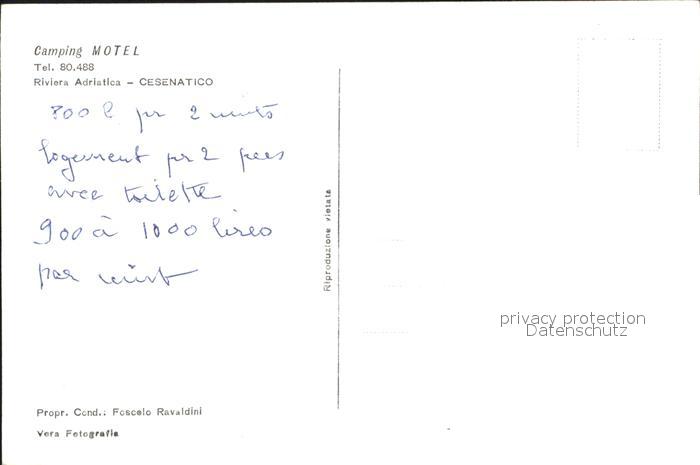 Camping MOTEL
Tel. 80.488
Riviera Adriatica – CESENATICO
800 l pr 2 nuits
logement pr 2 pers
avec toilette
900 à 1000 lires
par nuit
Riproduzione vietata
privacy protection
Datenschutz
Propr. Cond.: Foscolo Ravaldini
Vera Fotografia